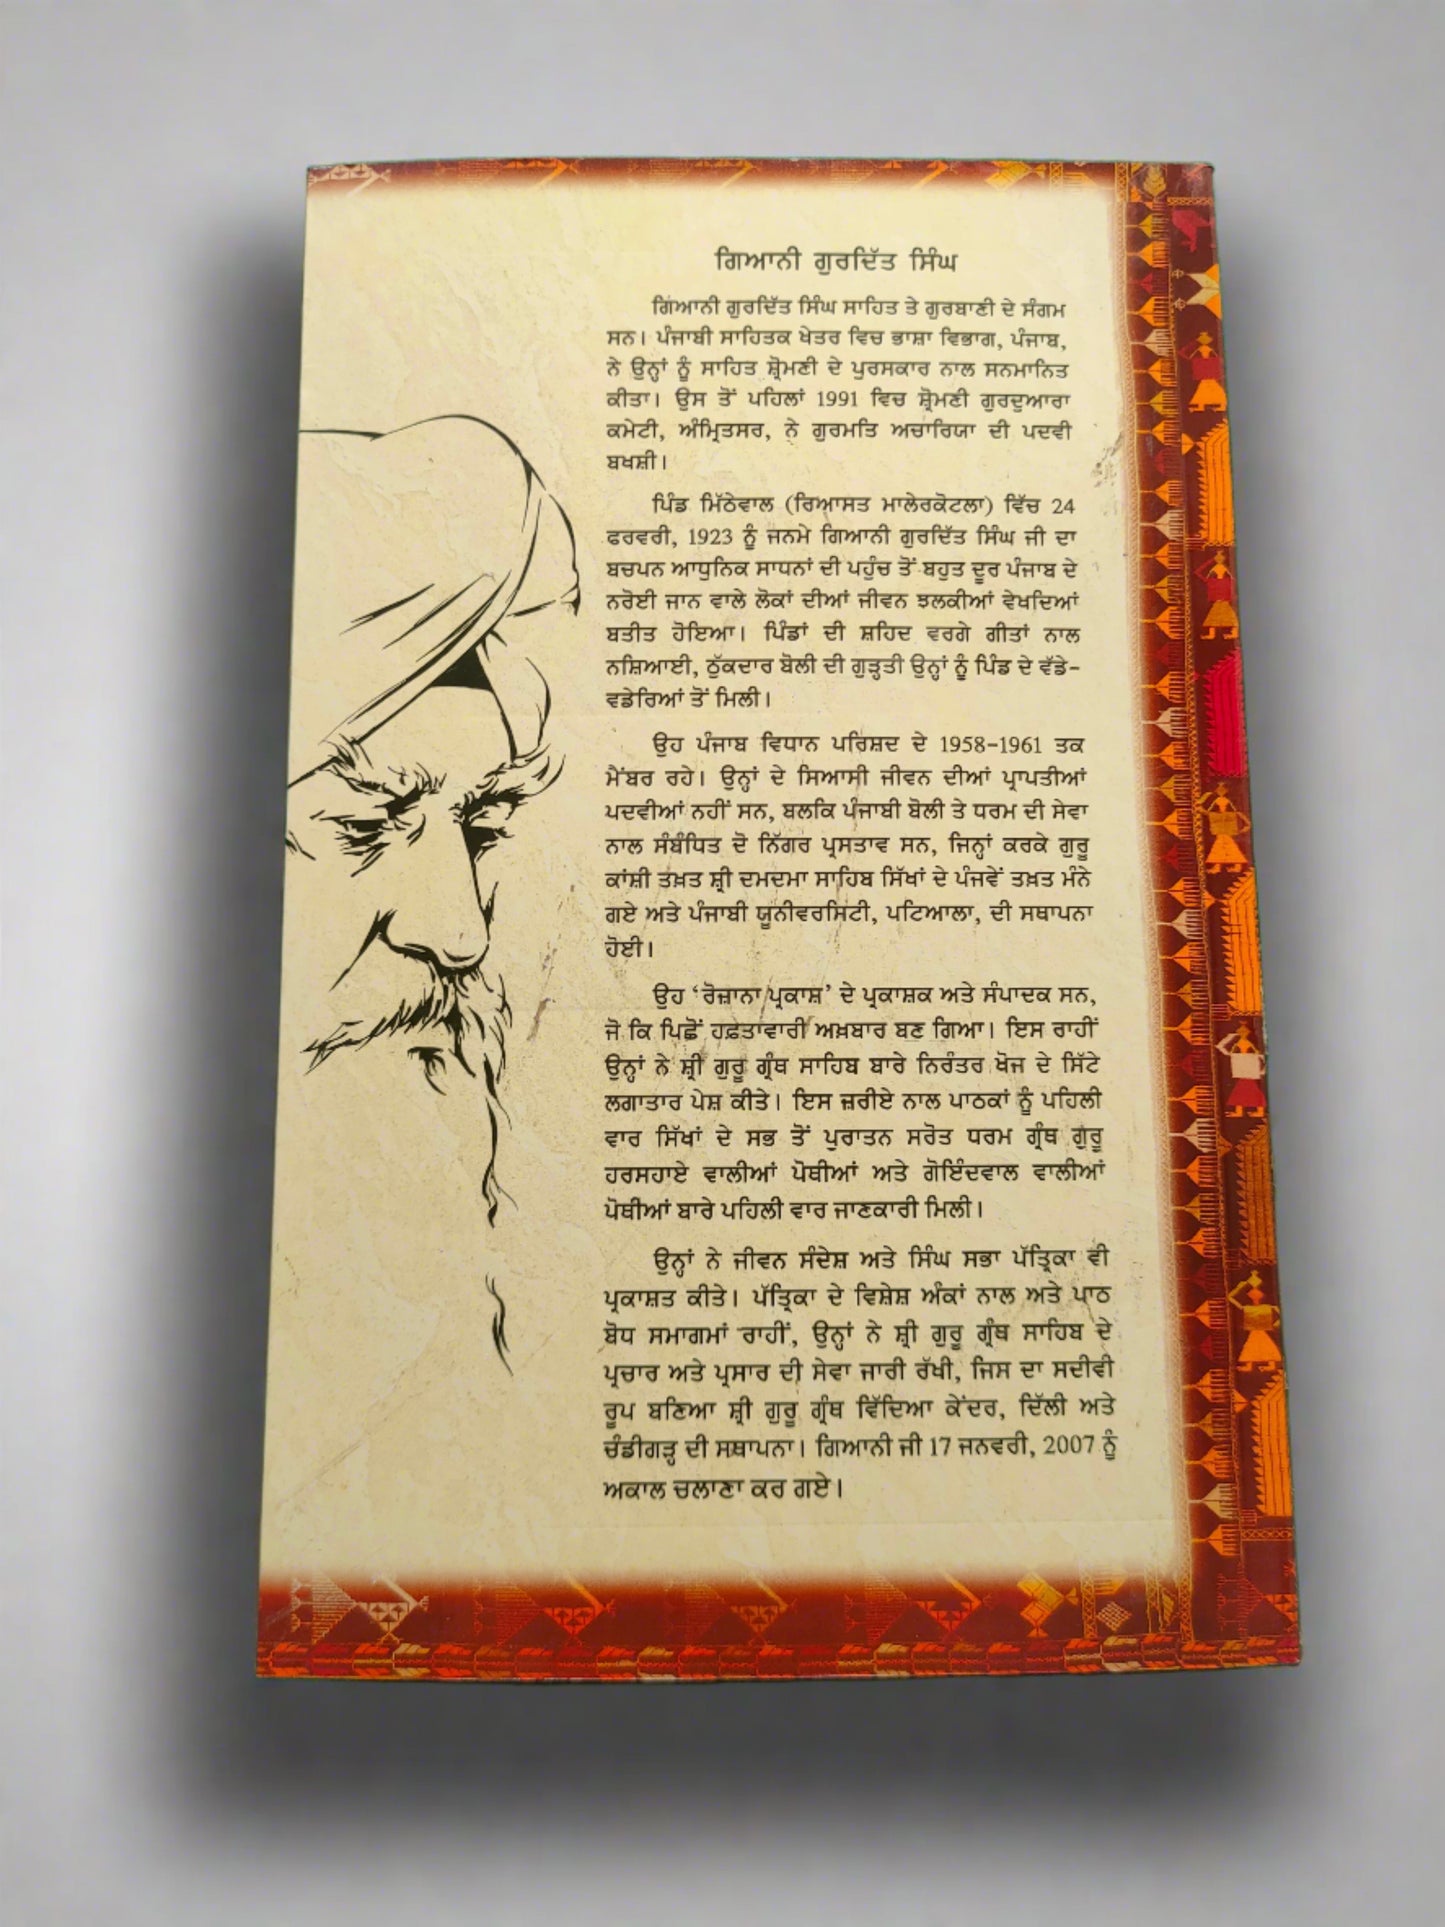 ਗਿਆਨੀ ਗੁਰਦਿੱਤ ਸਿੰਘ
ਗਿਆਨੀ ਗੁਰਦਿੱਤ ਸਿੰਘ ਸਾਹਿਤ ਤੇ ਗੁਰਬਾਣੀ ਦੇ ਸੰਗਮ
ਸਨ। ਪੰਜਾਬੀ ਸਾਹਿਤਕ ਖੇਤਰ ਵਿਚ ਭਾਸ਼ਾ ਵਿਭਾਗ, ਪੰਜਾਬ,
ਨੇ ਉਨ੍ਹਾਂ ਨੂੰ ਸਾਹਿਤ ਸ਼੍ਰੋਮਣੀ ਦੇ ਪੁਰਸਕਾਰ ਨਾਲ ਸਨਮਾਨਿਤ
ਕੀਤਾ। ਉਸ ਤੋਂ ਪਹਿਲਾਂ 1991 ਵਿਚ ਸ਼੍ਰੋਮਣੀ ਗੁਰਦੁਆਰਾ
ਕਮੇਟੀ, ਅੰਮ੍ਰਿਤਸਰ, ਨੇ ਗੁਰਮਤਿ ਅਚਾਰਿਯਾ ਦੀ ਪਦਵੀ
ਬਖਸ਼ੀ।
ਪਿੰਡ ਮਿੱਠੇਵਾਲ (ਰਿਆਸਤ ਮਾਲੇਰਕੋਟਲਾ) ਵਿੱਚ 24
ਫਰਵਰੀ, 1923 ਨੂੰ ਜਨਮੇ ਗਿਆਨੀ ਗੁਰਦਿੱਤ ਸਿੰਘ ਜੀ ਦਾ
ਬਚਪਨ ਆਧੁਨਿਕ ਸਾਧਨਾਂ ਦੀ ਪਹੁੰਚ ਤੋਂ ਬਹੁਤ ਦੂਰ ਪੰਜਾਬ ਦੇ
ਨਰੋਈ ਜਾਨ ਵਾਲੇ ਲੋਕਾਂ ਦੀਆਂ ਜੀਵਨ ਝਲਕੀਆਂ ਵੇਖਦਿਆਂ
ਬਤੀਤ ਹੋਇਆ। ਪਿੰਡਾਂ ਦੀ ਸ਼ਹਿਦ ਵਰਗੇ ਗੀਤਾਂ ਨਾਲ
ਨਸ਼ਿਆਈ, ਠੁੱਕਦਾਰ ਬੋਲੀ ਦੀ ਗੁੜ੍ਹਤੀ ਉਨ੍ਹਾਂ ਨੂੰ ਪਿੰਡ ਦੇ ਵੱਡੇ-
ਵਡੇਰਿਆਂ ਤੋਂ ਮਿਲੀ।
ਉਹ ਪੰਜਾਬ ਵਿਧਾਨ ਪਰਿਸ਼ਦ ਦੇ 1958-1961 ਤਕ
ਮੈਂਬਰ ਰਹੇ। ਉਨ੍ਹਾਂ ਦੇ ਸਿਆਸੀ ਜੀਵਨ ਦੀਆਂ ਪ੍ਰਾਪਤੀਆਂ
ਪਦਵੀਆਂ ਨਹੀਂ ਸਨ, ਬਲਕਿ ਪੰਜਾਬੀ ਬੋਲੀ ਤੇ ਧਰਮ ਦੀ ਸੇਵਾ
ਨਾਲ ਸੰਬੰਧਿਤ ਦੋ ਨਿੱਗਰ ਪ੍ਰਸਤਾਵ ਸਨ, ਜਿਨ੍ਹਾਂ ਕਰਕੇ ਗੁਰੂ
ਕਾਂਸ਼ੀ ਤਖ਼ਤ ਸ਼੍ਰੀ ਦਮਦਮਾ ਸਾਹਿਬ ਸਿੱਖਾਂ ਦੇ ਪੰਜਵੇਂ ਤਖ਼ਤ ਮੰਨੇ
ਗਏ ਅਤੇ ਪੰਜਾਬੀ ਯੂਨੀਵਰਸਿਟੀ, ਪਟਿਆਲਾ, ਦੀ ਸਥਾਪਨਾ
ਹੋਈ।
ਉਹ ‘ਰੋਜ਼ਾਨਾ ਪ੍ਰਕਾਸ਼’ ਦੇ ਪ੍ਰਕਾਸ਼ਕ ਅਤੇ ਸੰਪਾਦਕ ਸਨ,
ਜੋ ਕਿ ਪਿਛੋਂ ਹਫ਼ਤਾਵਾਰੀ ਅਖ਼ਬਾਰ ਬਣ ਗਿਆ। ਇਸ ਰਾਹੀਂ
ਉਨ੍ਹਾਂ ਨੇ ਸ਼੍ਰੀ ਗੁਰੂ ਗ੍ਰੰਥ ਸਾਹਿਬ ਬਾਰੇ ਨਿਰੰਤਰ ਖੋਜ ਦੇ ਸਿੱਟੇ
ਲਗਾਤਾਰ ਪੇਸ਼ ਕੀਤੇ। ਇਸ ਜ਼ਰੀਏ ਨਾਲ ਪਾਠਕਾਂ ਨੂੰ ਪਹਿਲੀ
ਵਾਰ ਸਿੱਖਾਂ ਦੇ ਸਭ ਤੋਂ ਪੁਰਾਤਨ ਸਰੋਤ ਧਰਮ ਗ੍ਰੰਥ ਗੁਰੂ
ਹਰਸਹਾਏ ਵਾਲੀਆਂ ਪੋਥੀਆਂ ਅਤੇ ਗੋਇੰਦਵਾਲ ਵਾਲੀਆਂ
ਪੋਥੀਆਂ ਬਾਰੇ ਪਹਿਲੀ ਵਾਰ ਜਾਣਕਾਰੀ ਮਿਲੀ।
ਉਨ੍ਹਾਂ ਨੇ ਜੀਵਨ ਸੰਦੇਸ਼ ਅਤੇ ਸਿੰਘ ਸਭਾ ਪੱਤ੍ਰਿਕਾ ਵੀ
ਪ੍ਰਕਾਸ਼ਤ ਕੀਤੇ। ਪੱਤ੍ਰਿਕਾ ਦੇ ਵਿਸ਼ੇਸ਼ ਅੰਕਾਂ ਨਾਲ ਅਤੇ ਪਾਠ
ਬੋਧ ਸਮਾਗਮਾਂ ਰਾਹੀਂ, ਉਨ੍ਹਾਂ ਨੇ ਸ਼੍ਰੀ ਗੁਰੂ ਗ੍ਰੰਥ ਸਾਹਿਬ ਦੇ
ਪ੍ਰਚਾਰ ਅਤੇ ਪ੍ਰਸਾਰ ਦੀ ਸੇਵਾ ਜਾਰੀ ਰੱਖੀ, ਜਿਸ ਦਾ ਸਦੀਵੀ
ਰੂਪ ਬਣਿਆ ਸ਼੍ਰੀ ਗੁਰੂ ਗ੍ਰੰਥ ਵਿੱਦਿਆ ਕੇਂਦਰ, ਦਿੱਲੀ ਅਤੇ
ਚੰਡੀਗੜ੍ਹ ਦੀ ਸਥਾਪਨਾ। ਗਿਆਨੀ ਜੀ 17 ਜਨਵਰੀ, 2007 ਨੂੰ
ਅਕਾਲ ਚਲਾਣਾ ਕਰ ਗਏ।